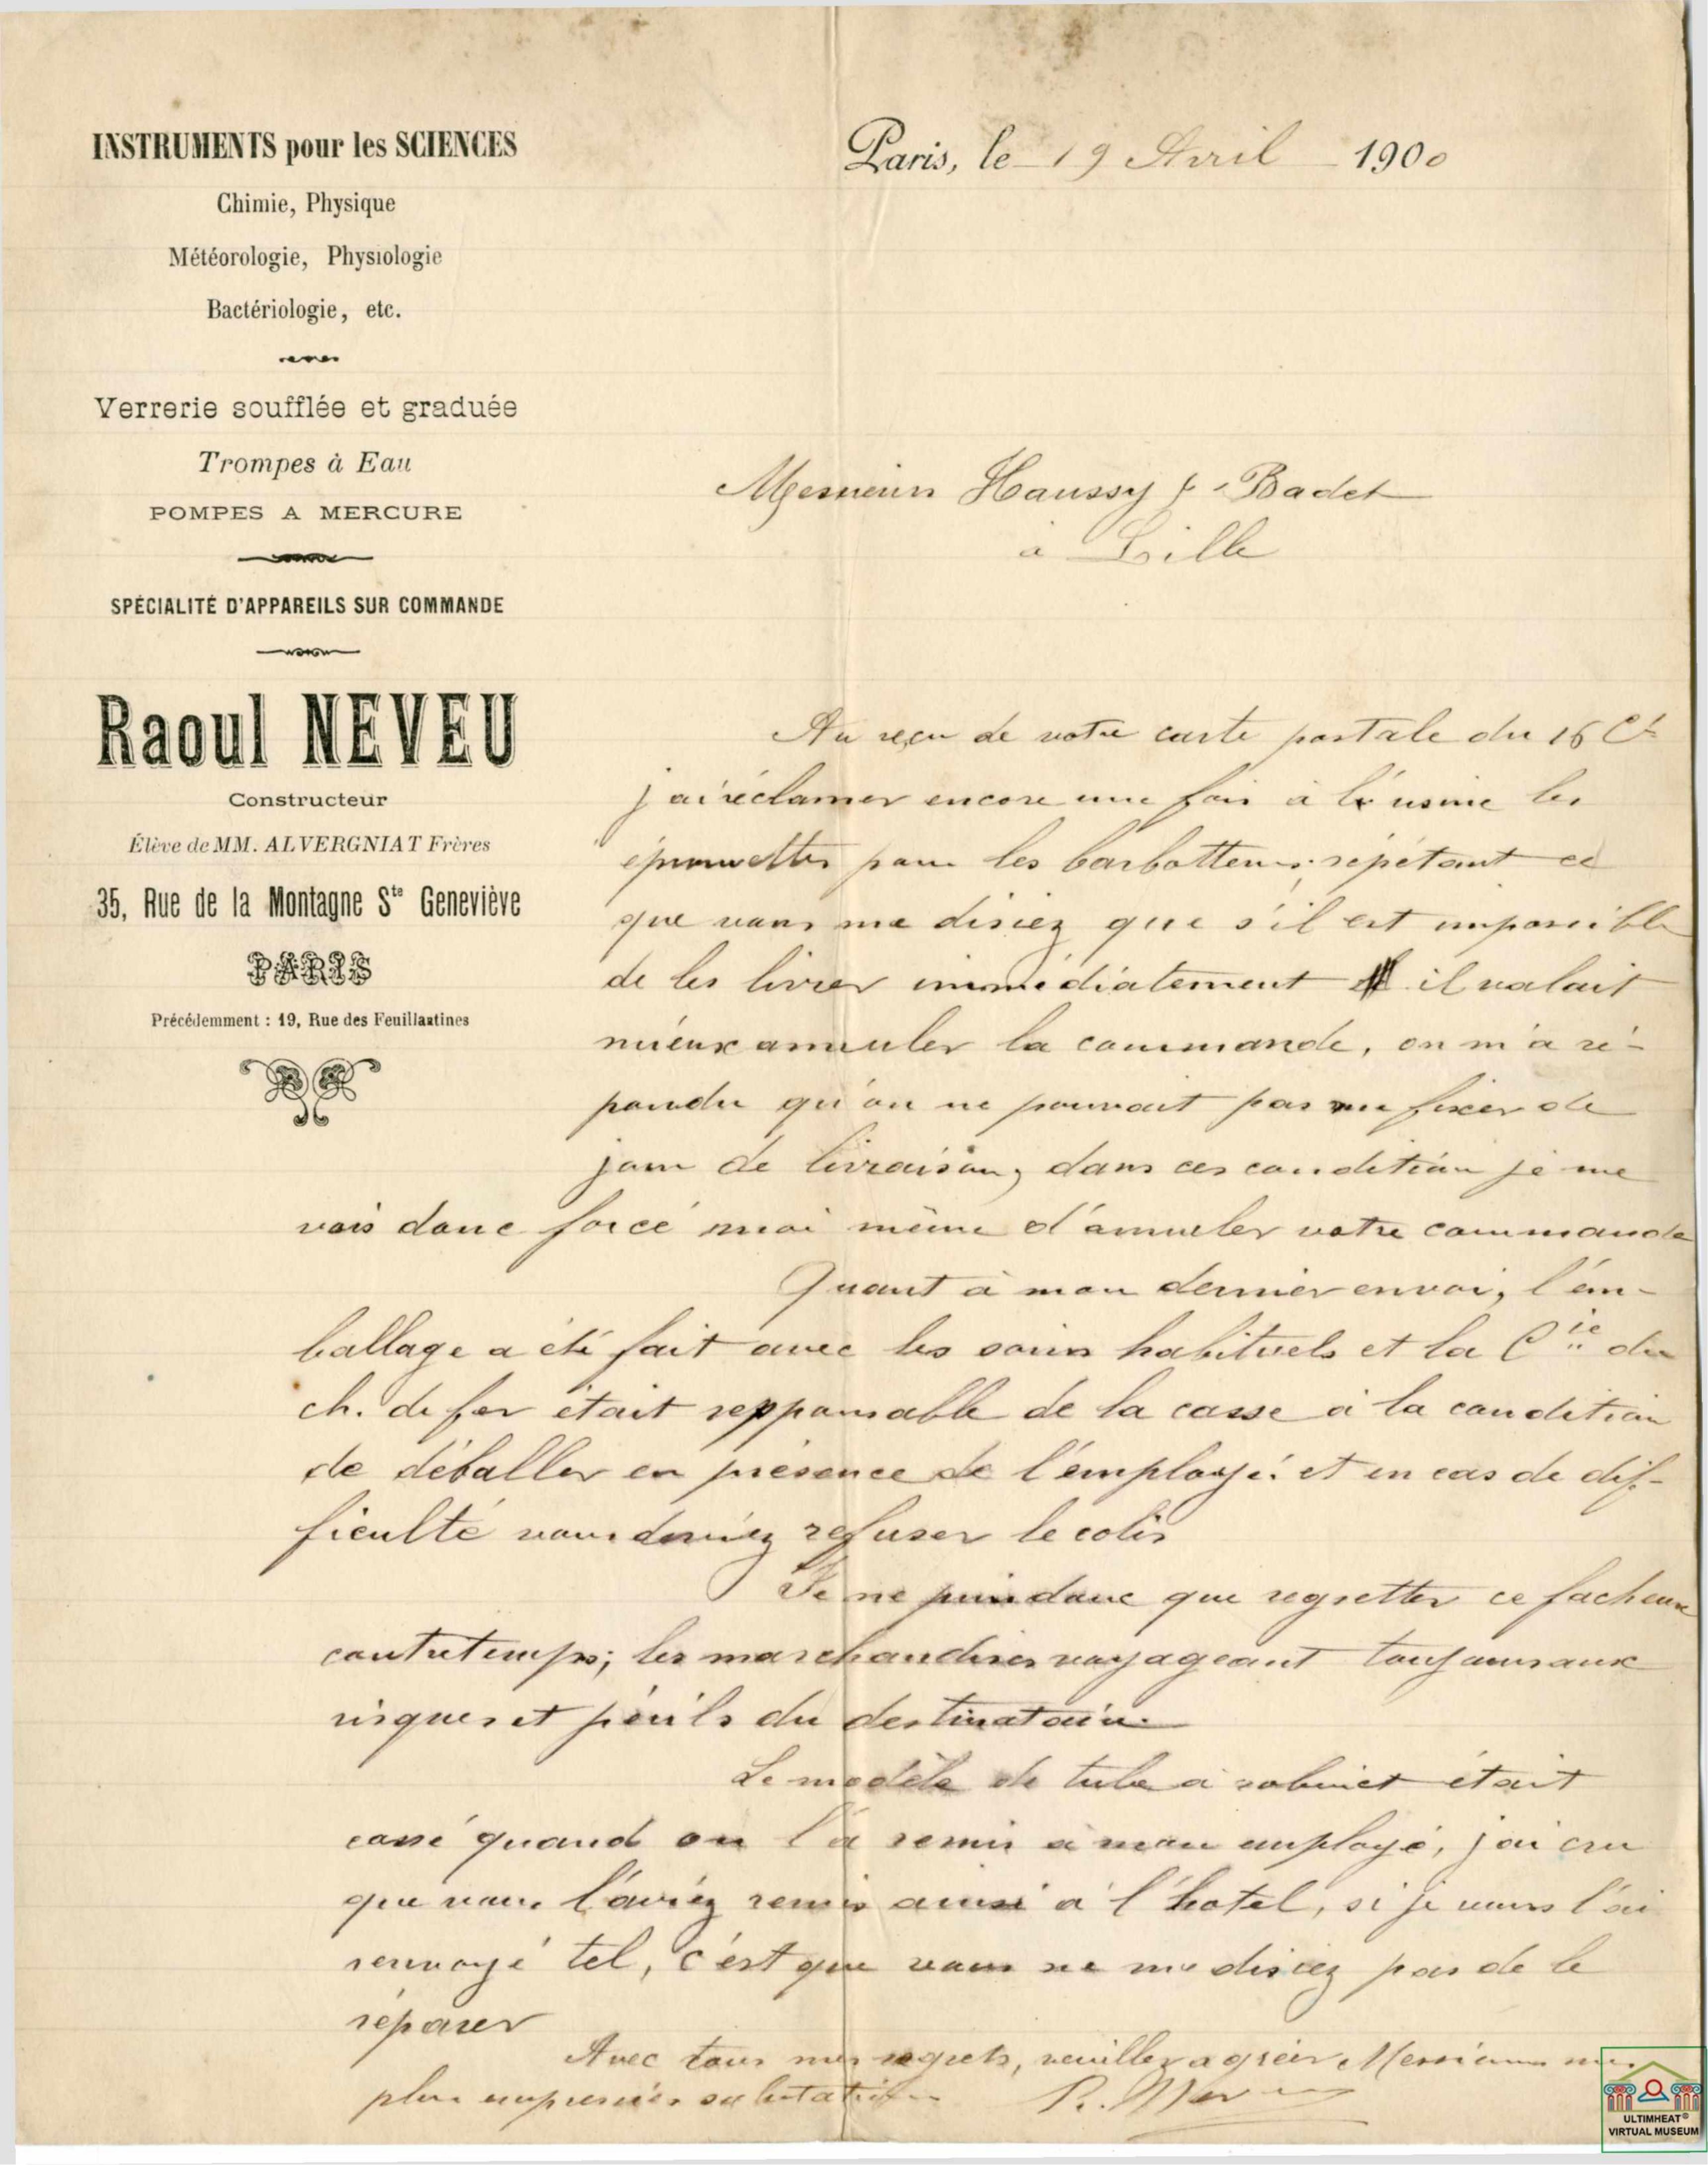 INSTRUMENTS pour les SCIENCES
Chimie, Physique
Météorologie, Physiologie
Bactériologie, etc.
Verrerie soufflée et graduée
Trompes à Eau
POMPES A MERCURE
SPÉCIALITÉ D'APPAREILS SUR COMMANDE
Raoul NEVEU
Constructeur
Élève de MM. ALVERGNIAT Frères
35, Rue de la Montagne Ste Geneviève
PARIS
Précédemment : 19, Rue des Feuillantines
Paris, le 19 Avril 1900
Messieurs Haussy & Badet
à Lille
Au reçu de votre carte postale du 16 Ct
j'ai réclamer encore une fois à l'usine les
éprouvettes pour les barbotteurs, répétant ce
que vous me disiez que s'il est impossible
de les livrer immédiatement il valait
mieux annuler la commande, on m'a ré-
pondu qu'on ne pouvait pas me fixer de
jour de livraison, dans ces condition je me
vois donc forcé moi même d'annuler votre commande
Quant à mon dernier envoi, l'em-
ballage a été fait avec les soins habituels et la Cie du
ch. de fer était responsable de la casse à la condition
de déballer en présence de l'employé. et en cas de dif-
ficulté vous deviez refuser le colis
Je ne puis donc que regretter ce facheux
contretemps; les marchandises voyageant toujours aux
risques et périls du destinataire.
Le modèle de tube à robinet était
cassé quand on l'a remis à mon employé, j'ai cru
que vous l'aviez remis ainsi à l'hotel, si je vous l'ai
renvoyé tel, c'est que vous ne me disiez pas de le
réparer
Avec tous mes regrets, veuillez agréer Messieurs mes
plus empressées salutations R. Neveu
ULTIMHEAT®
VIRTUAL MUSEUM